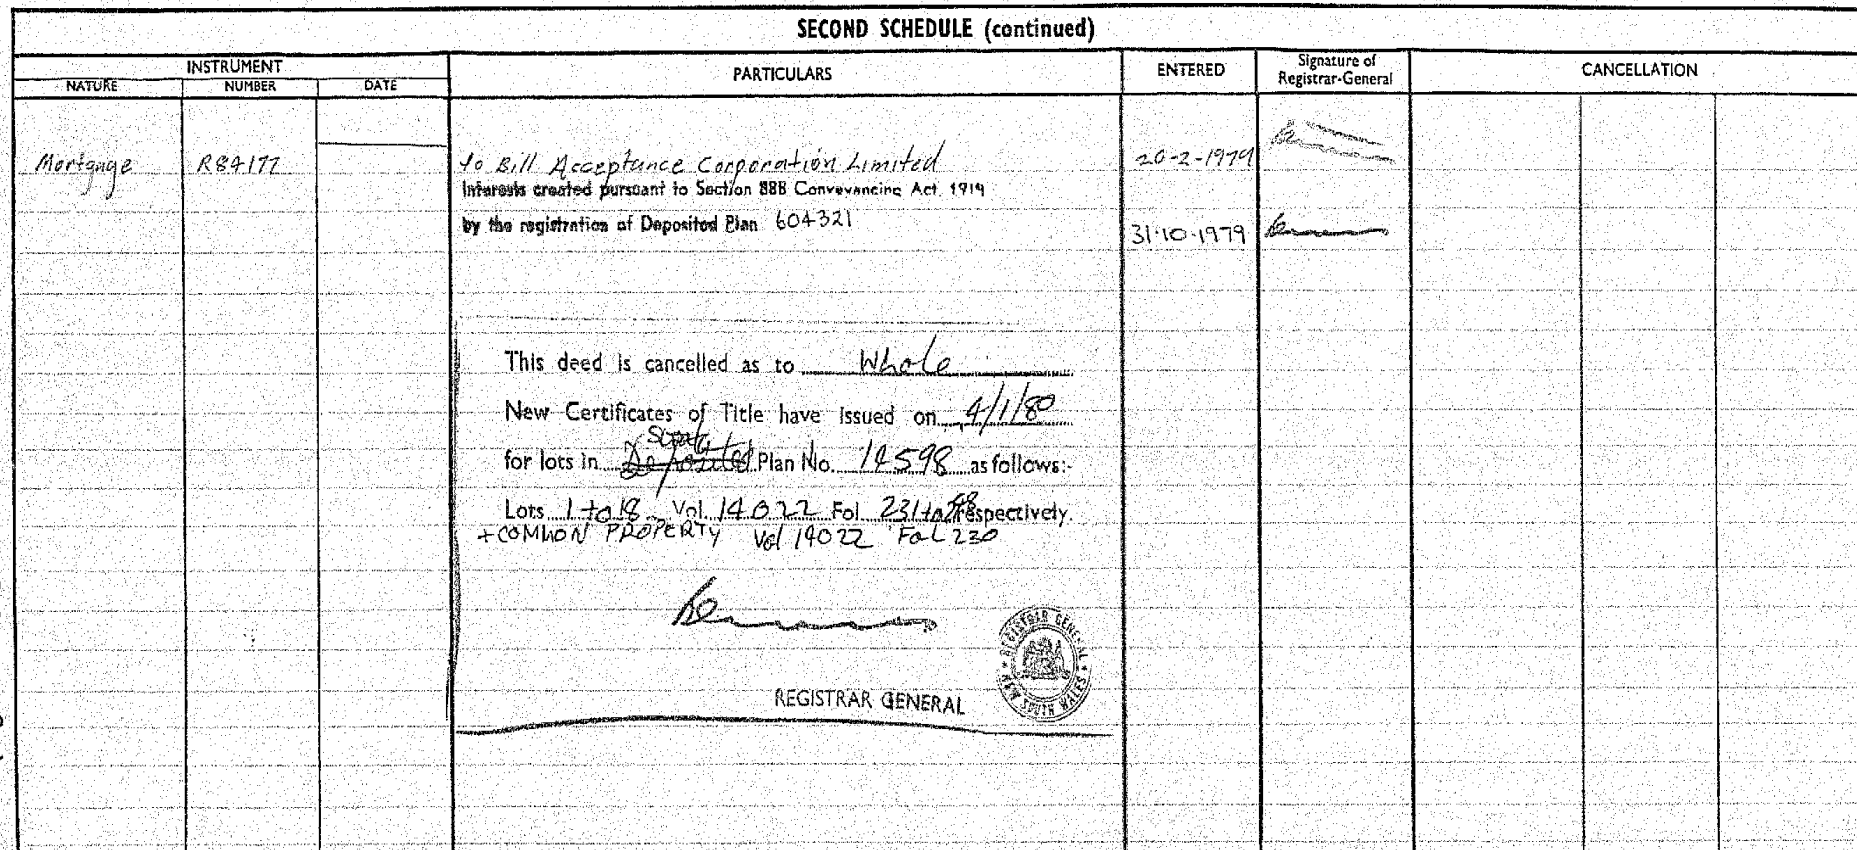 SECOND SCHEDULE (continued)
INSTRUMENT
NATURE NUMBER DATE PARTICULARS ENTERED Signature of Registrar-General CANCELLATION
Mortgage R84177 to Bill Acceptance Corporation Limited 20-2-1979
Interests created pursuant to Section 88B Conveyancing Act, 1919
by the registration of Deposited Plan 604321 31-10-1979
This deed is cancelled as to Whole
New Certificates of Title have issued on 4/1/80
Strata
for lots in Deposited Plan No. 14598 as follows:-
Lots 1 to 18 Vol. 14022 Fol. 231 to respectively.
+ COMMON PROPERTY Vol 14022 Fol 230
REGISTRAR GENERAL
REGISTRAR GENERAL NEW SOUTH WALES